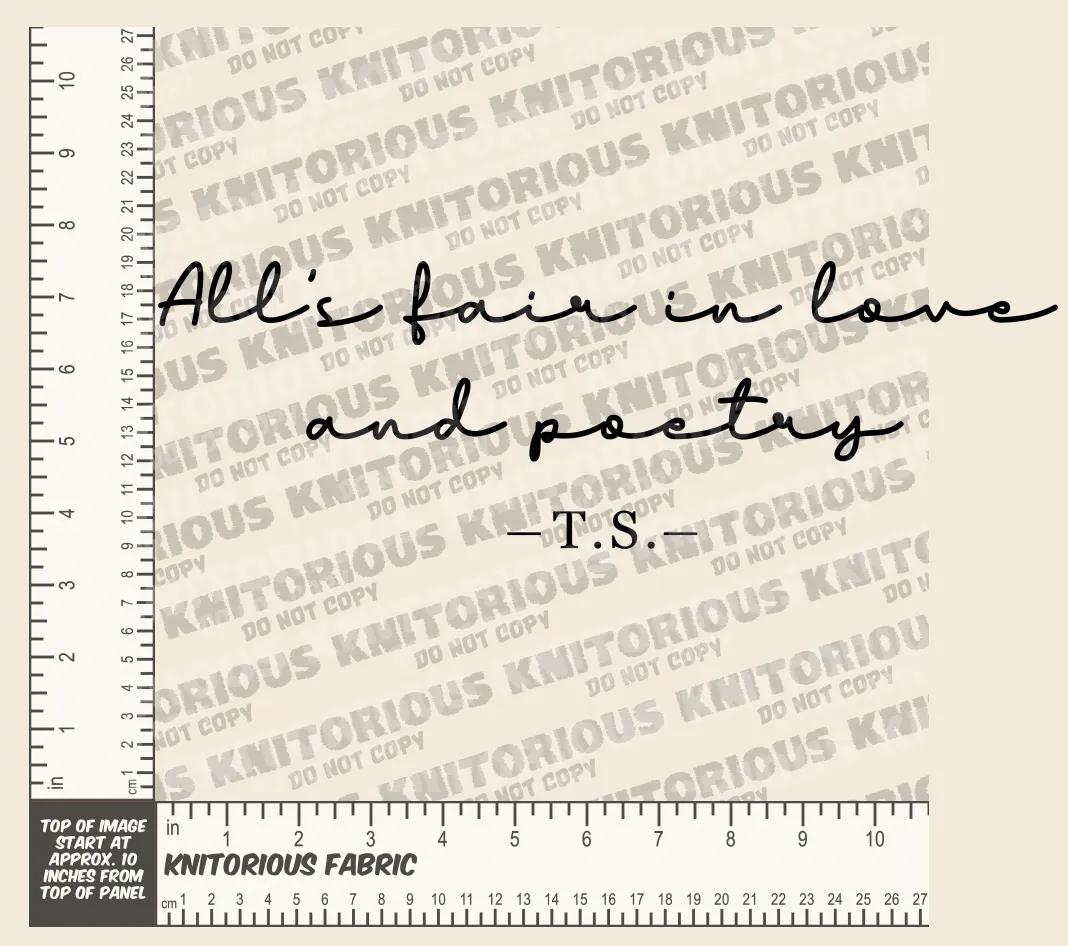 All's fair in love
and poetry
—T.S.—
KNITORIOUS
DO NOT COPY
in
1 2 3 4 5 6 7 8 9 10
cm 1 2 3 4 5 6 7 8 9 10 11 12 13 14 15 16 17 18 19 20 21 22 23 24 25 26 27
TOP OF IMAGE
START AT
APPROX. 10
INCHES FROM
TOP OF PANEL
in
1 2 3 4 5 6 7 8 9 10
KNITORIOUS FABRIC
cm 1 2 3 4 5 6 7 8 9 10 11 12 13 14 15 16 17 18 19 20 21 22 23 24 25 26 27